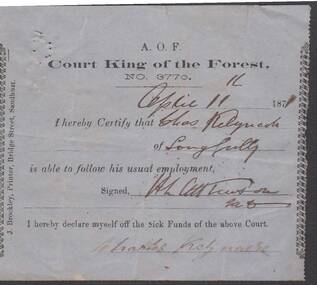 A. O. F.
Court King of the Forest.
NO. 3770.
April 11 187
I hereby Certify that Chas
of Long Gully
is able to follow his usual employment,
Signed, Atkinson
I hereby declare myself off the Sick Funds of the above Court.
Charles
J. Brockley, Printer, Bridge Street, Sandhurst.